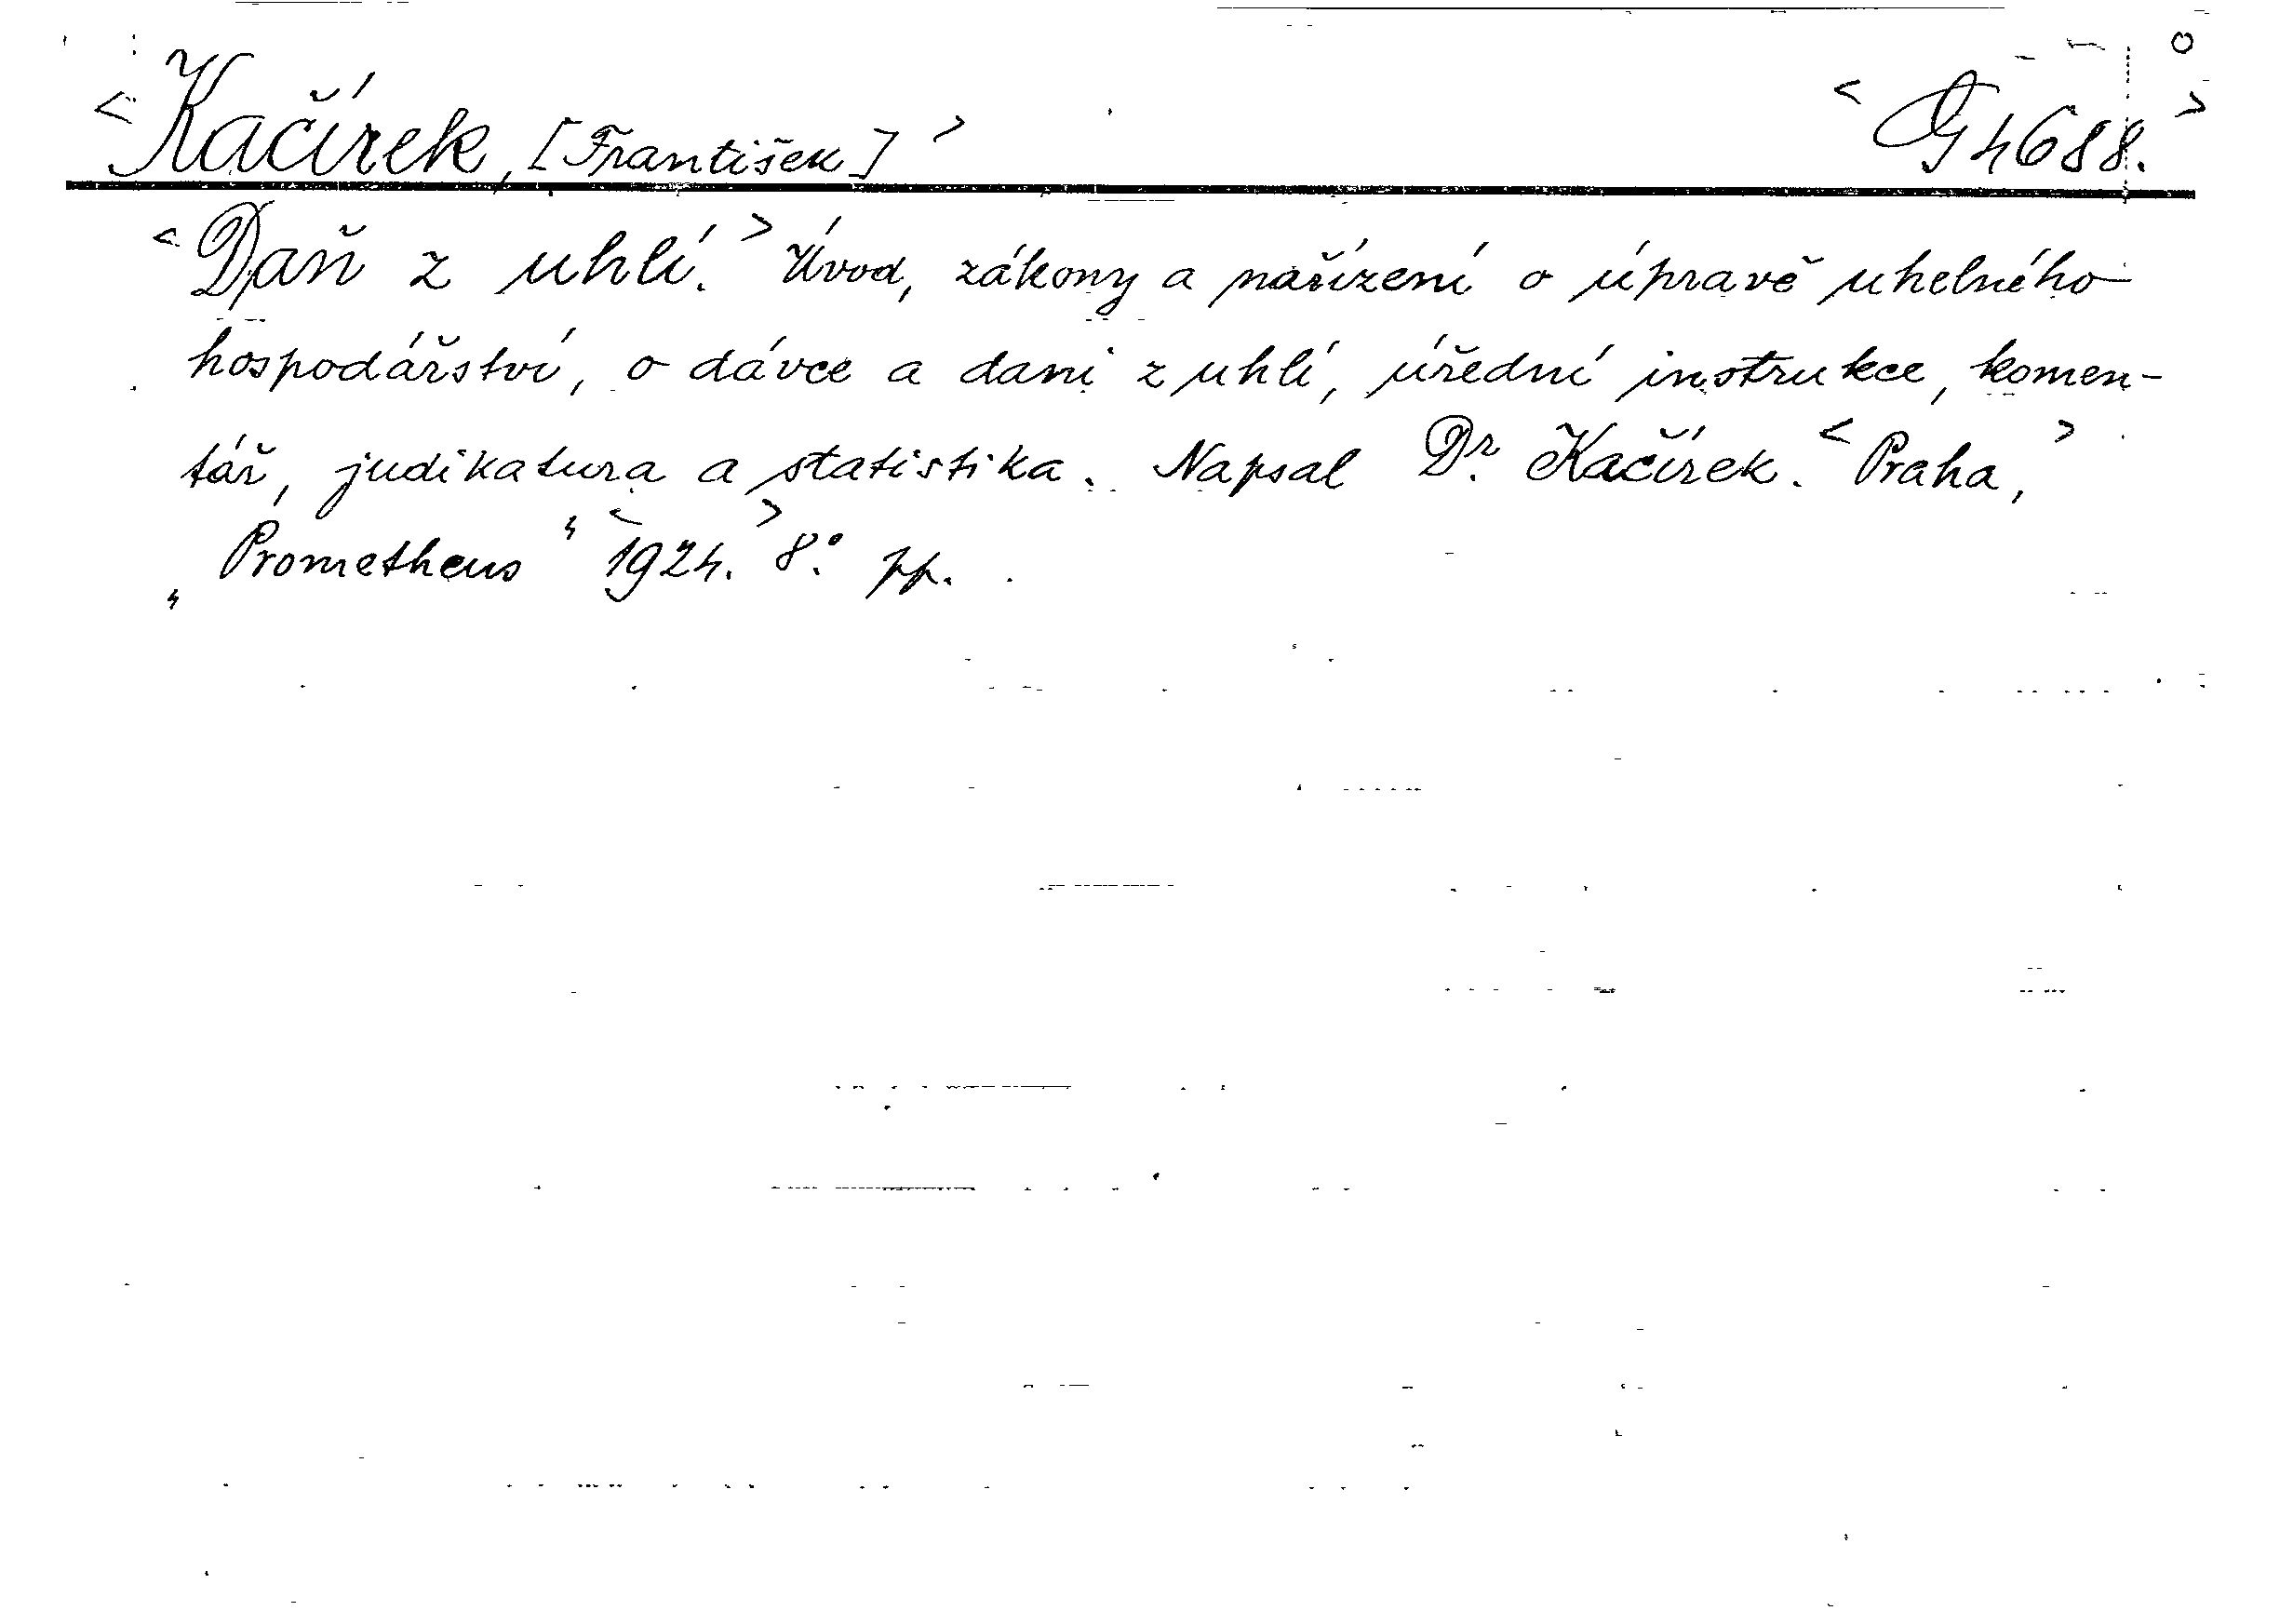 <Kačírek, [František]> <G 4688.>
<Daň z uhlí.> Úvod, zákony a nařízení o úpravě uhelného
hospodářství, o dávce a dani z uhlí, úřední instrukce, komen-
tář, judikatura a statistika. Napsal Dr. Kačírek. <Praha,>
„Prometheus" <1924.> 8°. pp.